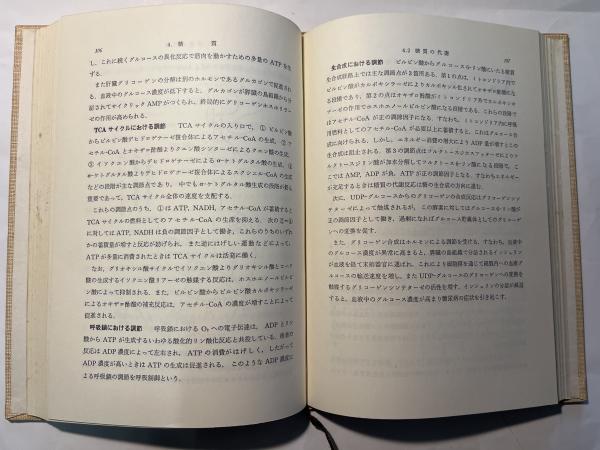 106
4. 糖 質
し、これに続くグルコースの異化反応で筋肉を動かすための多量の ATP を生
ずる.
また肝臓グリコーゲンの分解は別のホルモンであるグルカゴンで促進され
る. 血液中のグルコース濃度が低下すると, グルカゴンが膵臓の組織から分
泌されてサイクリック AMP がつくられ, 終局的にグリコーゲンホスホリラー
ゼの作用が高められる.
TCA サイクルにおける調節 TCA サイクルの入り口で, ① ピルビン酸
からピルビン酸デヒドロゲナーゼ複合体によるアセチル-CoA の生成, ②
アセチル-CoA とオキザロ酢酸よりクエン酸シンターゼによるクエン酸の生成,
③ イソクエン酸からデヒドロゲナーゼによる α-ケトグルタル酸の生成, ④
α-ケトグルタル酸よりデヒドロゲナーゼ複合体によるスクシニル-CoA の生成
などの段階が主な調節点であり, 中でも α-ケトグルタル酸生成の段階が最も
重要であって, TCA サイクル全体の速度を支配する.
これらの調節点のうち, ① は ATP, NADH, アセチル-CoA が蓄積すると
TCA サイクルの燃料としてのアセチル-CoA の生産を抑える. 次の ②〜④
に対しては ATP, NADH は負の調節因子として働き, これらのうちのいずれ
かの蓄積量が増すと反応が妨げられ, また逆にはげしい運動などによって,
ATP が多量に消費されたときは TCA サイクルは活発に働く.
なお, グリオキシル酸サイクルでイソクエン酸よりグリオキシル酸とコハク
酸の生成するイソクエン酸リアーゼの触媒する反応は, ホスホエノールピルビ
ン酸によって抑制される. また, ピルビン酸からピルビン酸カルボキシラーゼ
によるオキザロ酢酸の補充反応は, アセチル-CoA の濃度が増すことによって
促進される.
呼吸鎖における調節 呼吸鎖における O₂ への電子伝達は, ADP とリン
酸から ATP が生成するいわゆる酸化的リン酸化反応と共役している. 後者の
反応は ADP 濃度によって左右され, ATP の消費がはげしく, したがって
ADP 濃度が高いときは ATP の生成は促進される. このような ADP 濃度に
よる呼吸鎖の調節を呼吸制御という.
4.2 糖質の代謝
107
生合成における調節 ピルビン酸からグルコース-6-リン酸にいたる糖質
生合成経路上では主な調節点が3箇所ある. 第1の点は, ミトコンドリア内で
ピルビン酸がカルボキシラーゼによりカルボキシ化されてオキザロ酢酸にな
る段階であり, 第2の点はオキザロ酢酸がミトコンドリア外でホスホエノールピルビン酸になる段階である. これらの段階で
はアセチル-CoA が正の調節因子になる. すなわち, ミトコンドリア内に呼吸
用燃料としてのアセチル-CoA が必要以上に蓄積すると, これはグルコース合
成に向けられる. しかし, エネルギー消費の増大により ADP が増すとこの
生合成は阻止される. 第3の調節点はフルクトースビスホスファターゼによりフ
ルクトースジリン酸が加水分解してフルクトース-6-リン酸になる段階で, こ
こでは AMP, ADP が負, ATP が正の調節因子となる. すなわちエネルギー
が充足するときは糖質の代謝反応は糖の生合成の方向に進む.
次に, UDP-グルコースからのグリコーゲンの合成反応はグリコーゲンシン
テターゼによって触媒されるが, この酵素に対してはグルコース-6-リン酸が正
の調節因子として働き, 過剰になればグルコース貯蔵体としてのグリコーゲン
への変換を促す.
また, グリコーゲン合成はホルモンによる調節を受ける. すなわち, 血液中
のグルコース濃度が異常に高まると, 膵臓の島組織で分泌されるインシュリン
が血液を経て体細胞に運ばれ, これにより細胞膜を通じて細胞内へのグル
コースの輸送速度を増し, また UDP-グルコースのグリコーゲンへの変換を触
媒するグリコーゲンシンテターゼの活性を増す. インシュリンの分泌が減退
すると, 血液中のグルコース濃度が高まり糖尿病の症状を引き起こす.